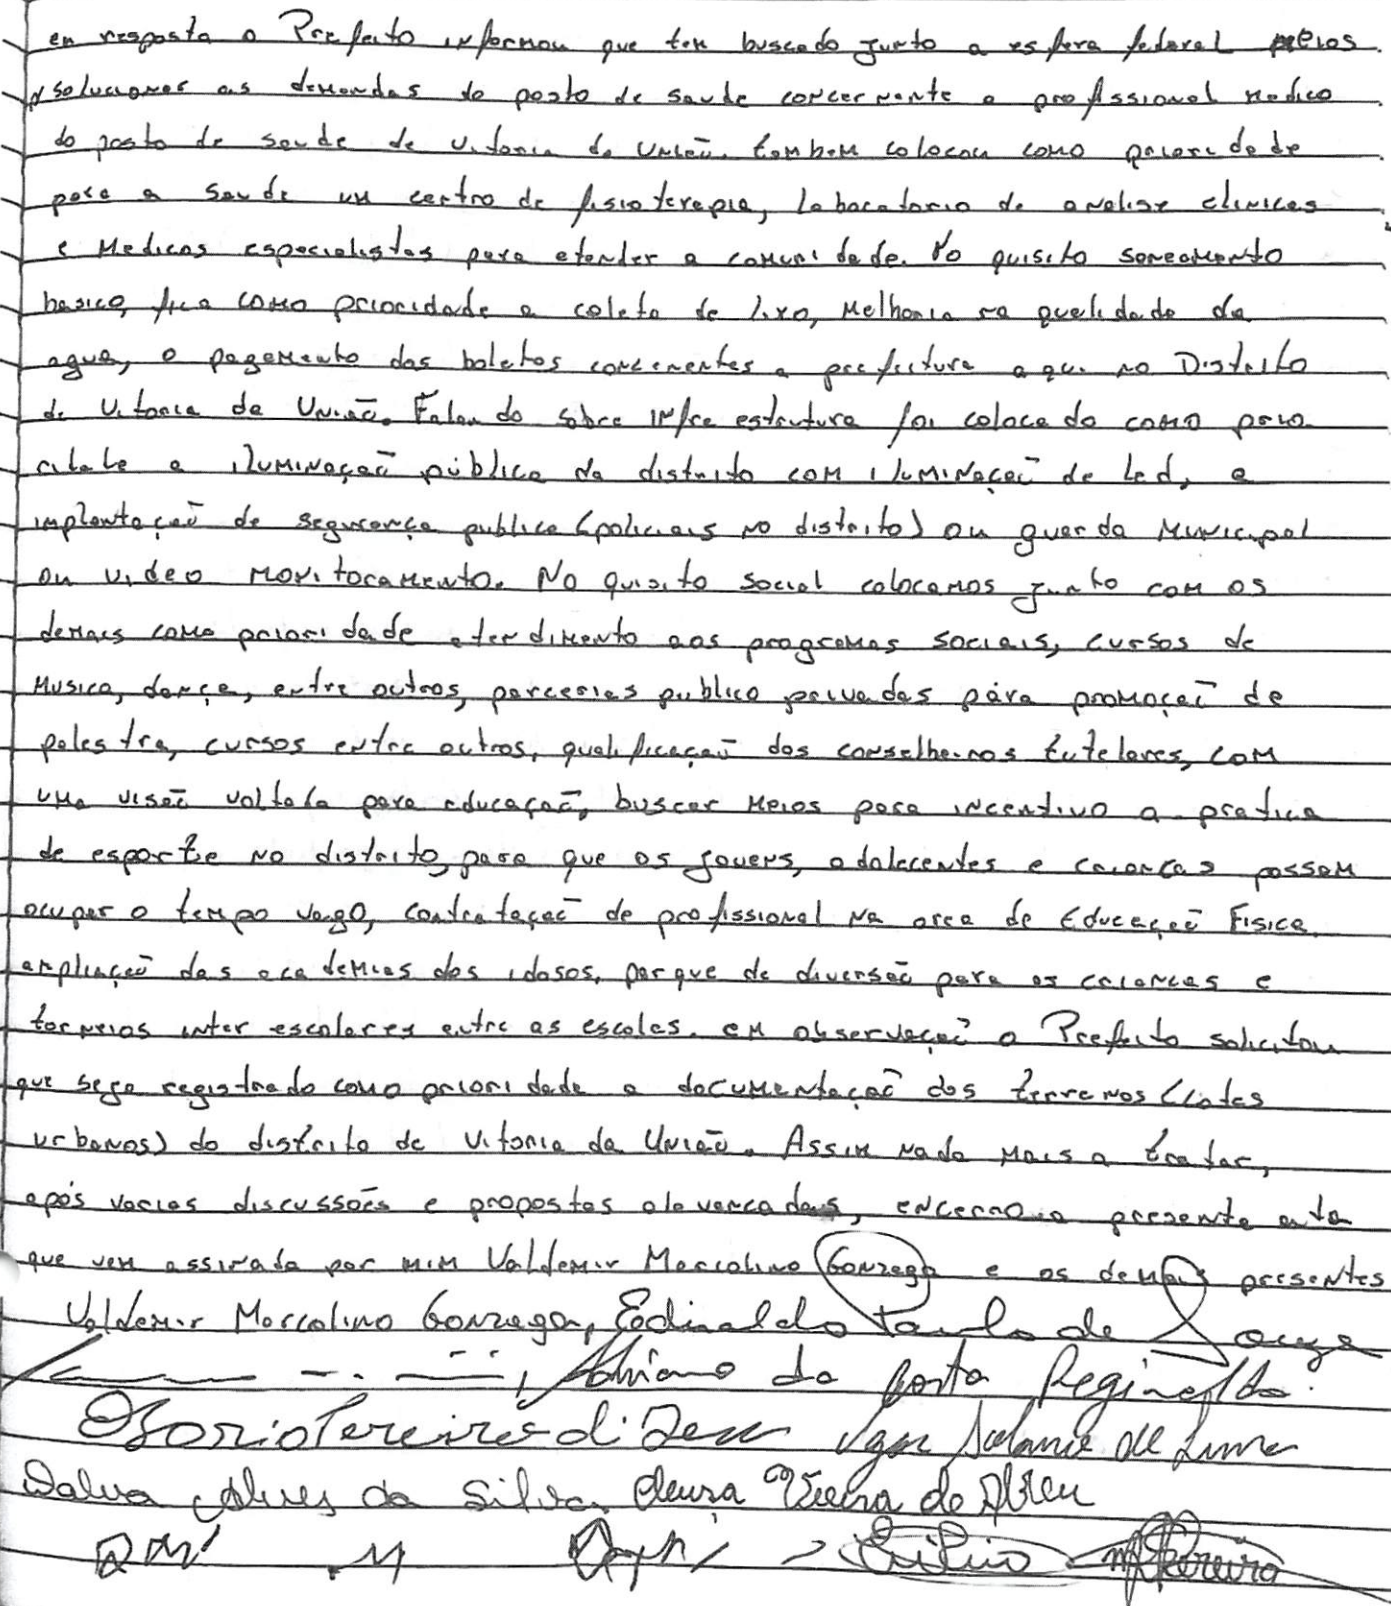 em resposta o Prefeito informou que tem buscado junto a esfera federal meios
p/ solucionar as demandas do posto de saude concernente a profissional medico
do posto de saude de Vitoria da União. tambem colocou como prioridade
para a saude um centro de fisioterapia, laboratorio de analise clinicas
e medicos especialistas para atender a comunidade. No quisito saneamento
basico, fica como prioridade a coleta de lixo, melhoria na qualidade da
agua, o pagamento dos boletos concernentes a prefeitura aqui no Distrito
de Vitoria da União. Falando sobre infra estrutura foi colocado como prio
ridade a iluminação pública do distrito com iluminação de Led, e
implantação de segurança publica (policiais no distrito) ou guarda Municipal
ou video monitoramento. No quisito social colocamos junto com os
demais como prioridade atendimento aos programas sociais, cursos de
musica, dança, entre outros, parcerias publico privadas pára promoção de
palestra, cursos entre outros, qualificação dos conselheiros tutelares, com
uma visão voltada para educação, buscar meios para incentivo a pratica
de esporte no distrito, para que os jovens, adolecentes e crianças possam
ocupar o tempo vago, contratação de profissional na area de Educação Fisica
ampliação das academias dos idosos, parque de diversão para as criancas e
torneios inter escolares entre as escolas. em observação o Prefeito solicitou
que seja registrado como prioridade a documentação dos terrenos (lotes
urbanos) do distrito de Vitoria da União. Assim nada mais a tratar,
após varias discussões e propostas alavancadas, encerro a presente ata
que vem assinada por mim Valdemir Marcolino Gonzaga e os demais presentes
Valdemir Marcolino Gonzaga, Edinaldo Paulo de Souza
Adriano da Reginaldo
Pereira de Lima
Dalva Alves da Silva Cleusa Vieira de Abreu
Pereira